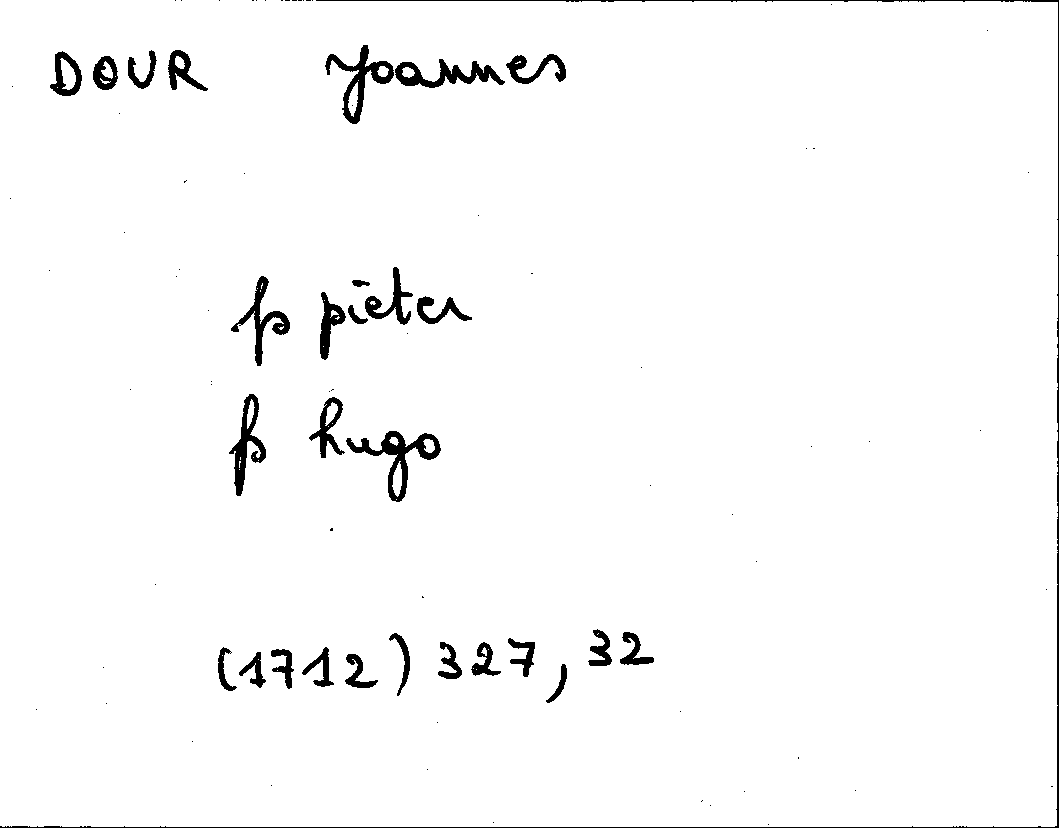 DOUR Joannes
fs pieter
fs hugo
(1712) 327, 32